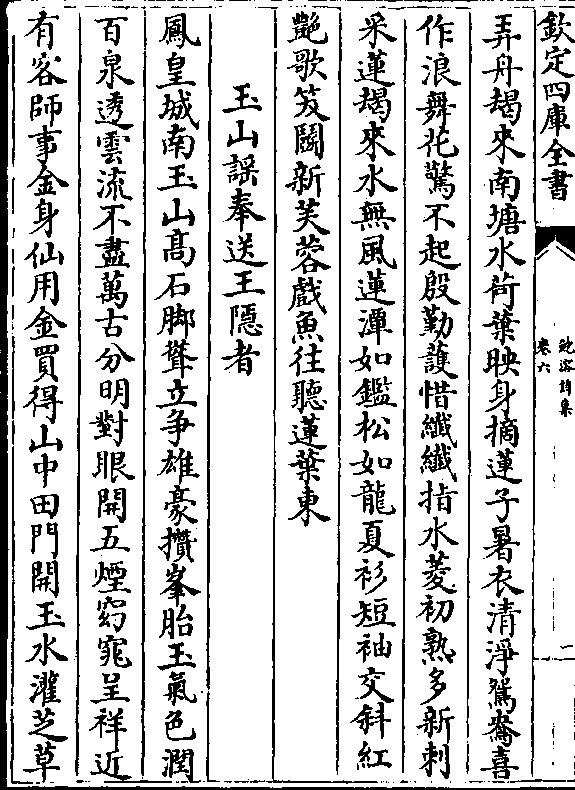 欽定四庫全書
鮑溶詩集
卷六
二
弄舟朅來南塘水荷葉映身摘蓮子暑衣清淨鴛鴦喜
作浪舞花驚不起殷勤護惜纖纖指水菱初熟多新刺
采蓮朅來水無風蓮潭如鑑松如龍夏衫短袖交斜紅
艷歌笑鬭新芙蓉戲魚往聽蓮葉東
玉山謡奉送王隱者
鳳皇城南玉山高石脚聳立争雄豪攢峯胎玉氣色潤
百泉透雲流不盡萬古分明對眼開五煙窈窕呈祥近
有客師事金身仙用金買得山中田門開玉水灌芝草